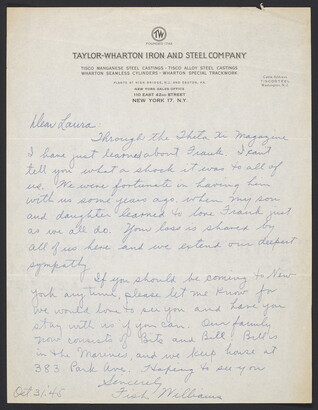 TW
TAYLOR-WHARTON IRON AND STEEL COMPANY
TISCO MANGANESE STEEL CASTINGS · TISCO ALLOY STEEL CASTINGS
WHARTON SEAMLESS CYLINDERS · WHARTON SPECIAL TRACKWORK
PLANTS AT HIGH BRIDGE, N.J. AND EASTON, PA.
NEW YORK SALES OFFICE
110 EAST 42ND STREET
NEW YORK 17, N.Y.
Cable Address
Dear Laura.
Through the Theta Xi Magazine
I have just learned about Frank. I can't
tell you what a shock it was to all of
us. We were fortunate in having him
with us some years ago when my son
and daughter learned to love Frank just
as we all do. Your loss is shared by
all of us here and we extend our deepest
sympathy.
If you should be coming to New
York any time, please let me know for
we would love to see you and have you
stay with us if you can. Our family
now consists of Bets and Bill. Bill is
in the Marines, and we keep house at
383 Park Ave. Hoping to see you
Sincerely
Oct 31 '45 Fish Williams